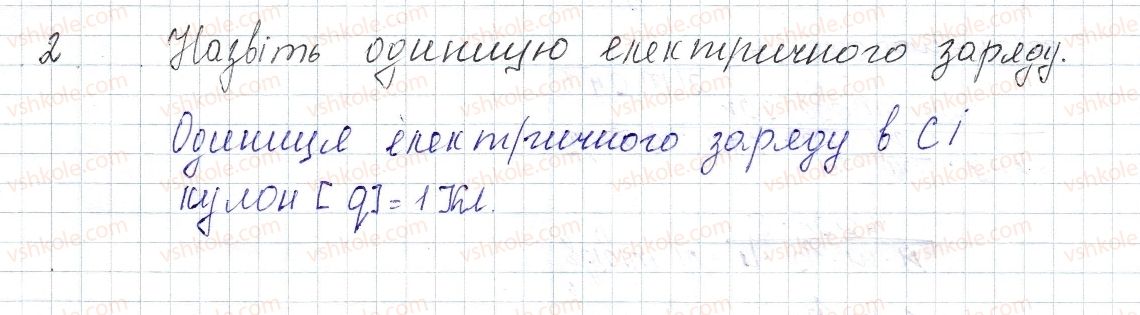 2. Назвіть одиницю електричного заряду.
Одиниця електричного заряду в СІ
кулон [q]=1Кл.